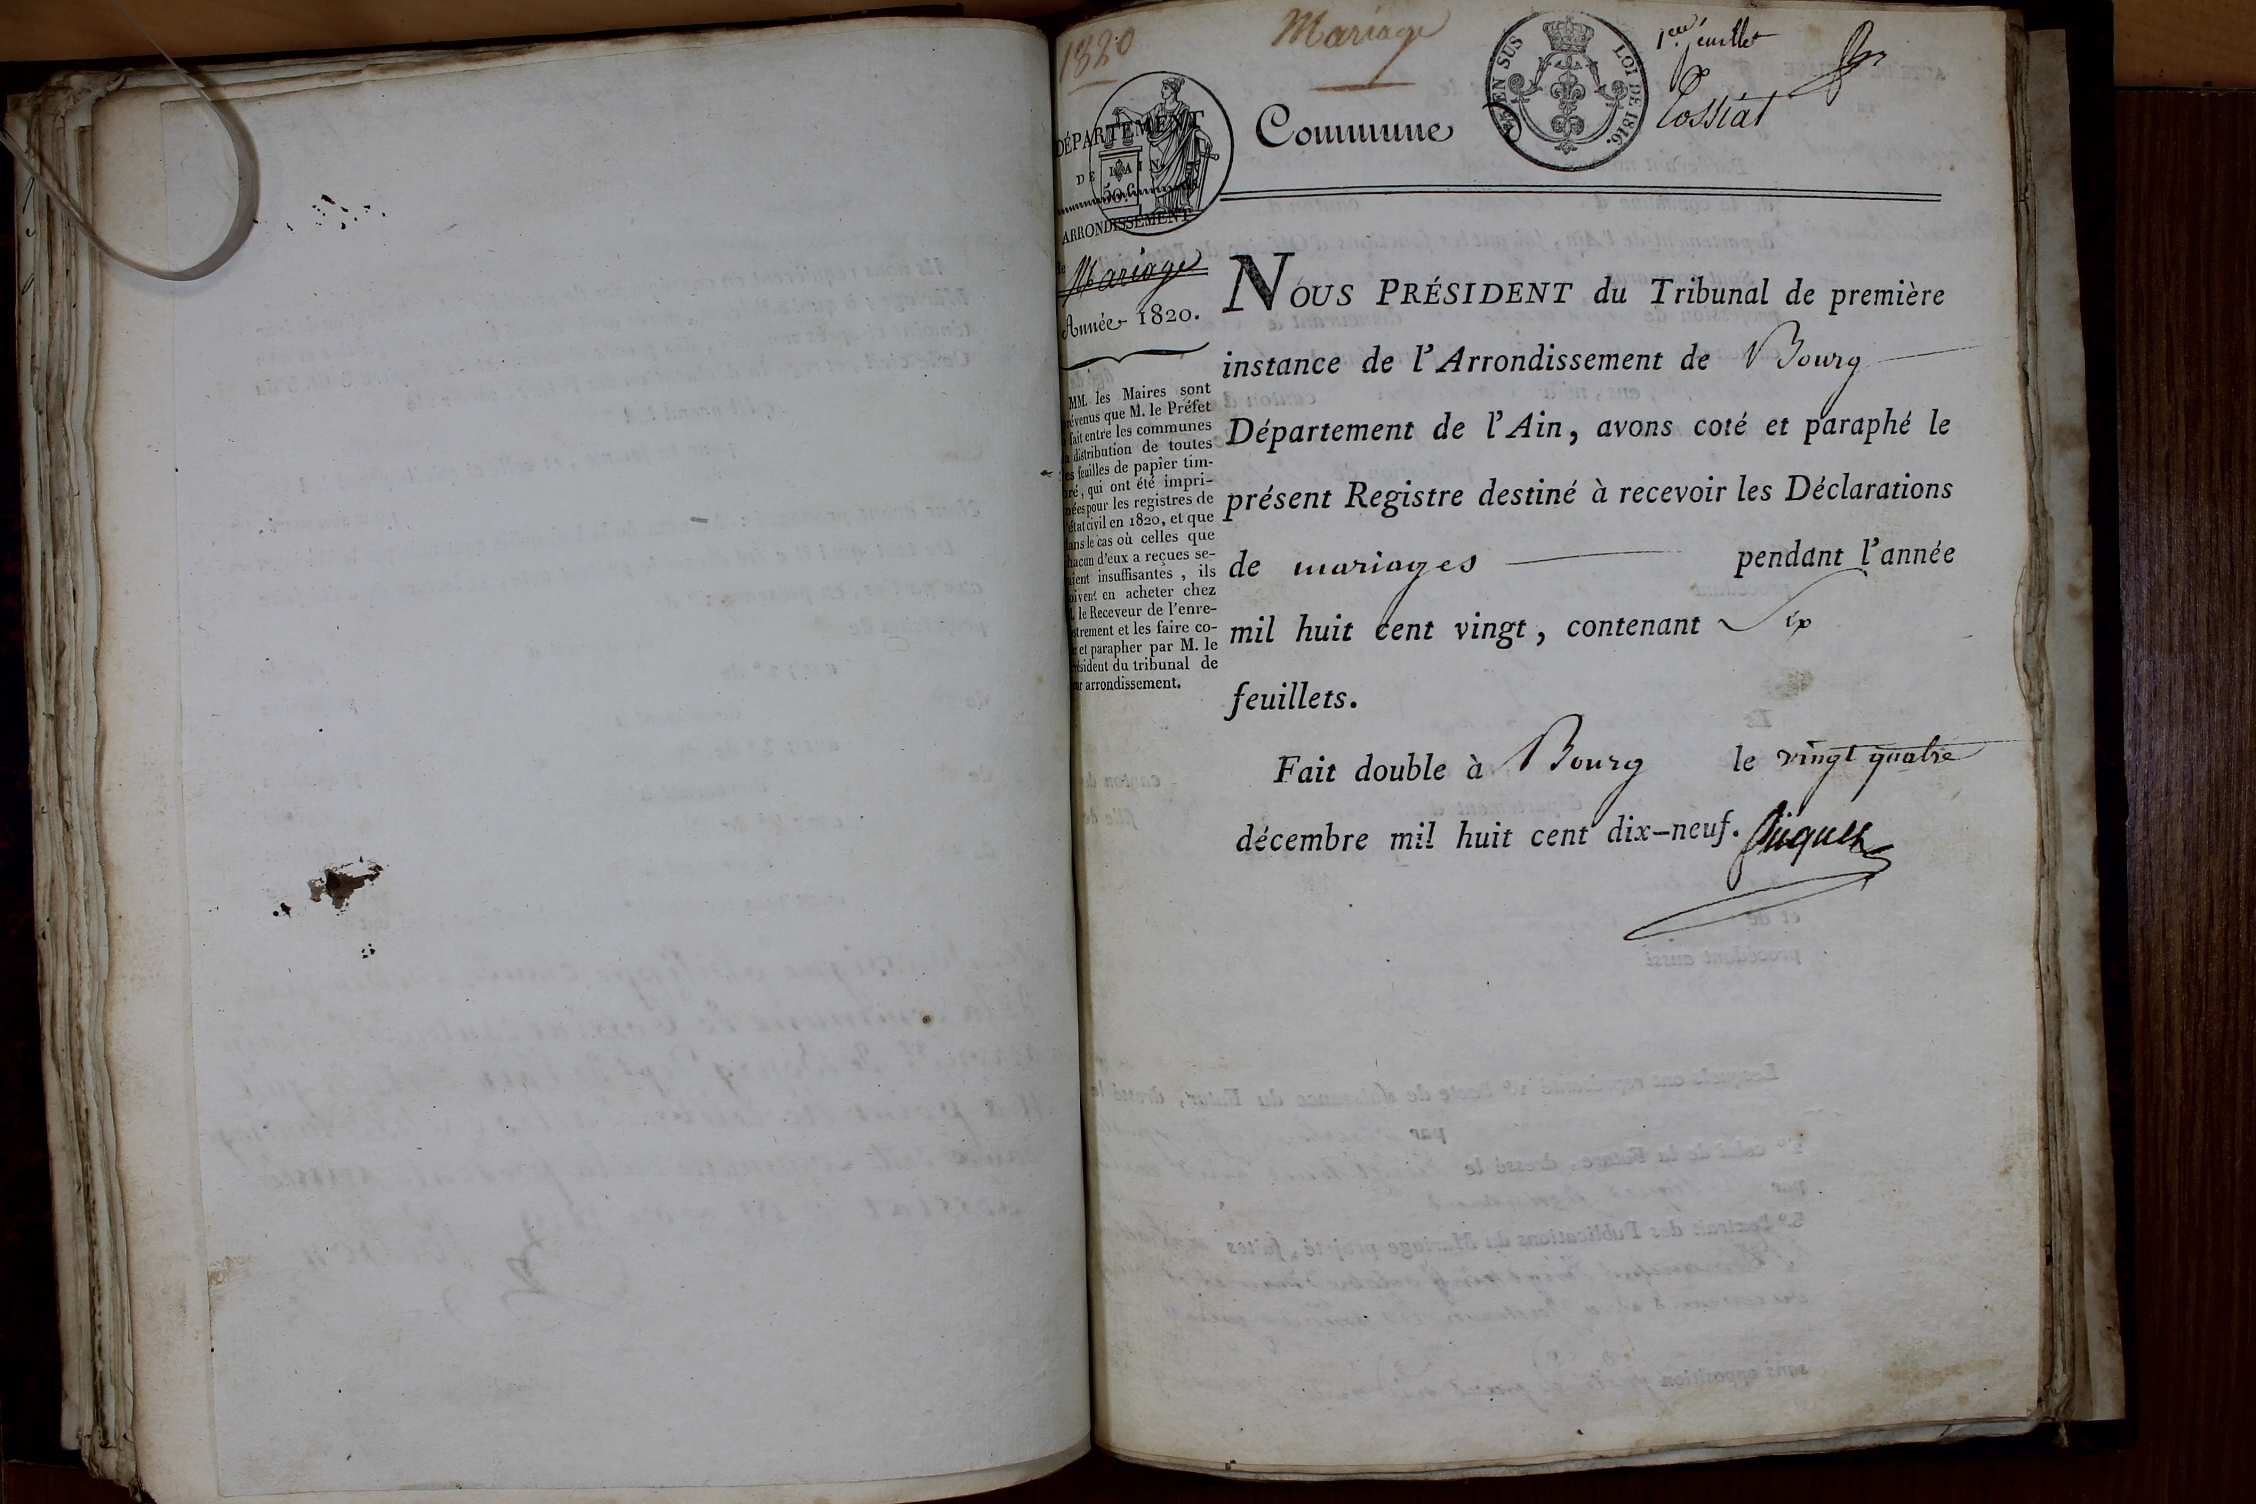 1820
Mariage
1er feuillet
EN SUS
LOI DE 1816.
Tossiat
Commune
DÉPARTEMENT
DE L'AIN
50c
ARRONDISSEMENT
de
Mariage
Année 1820.
MM. les Maires sont
prévenus que M. le Préfet
a fait entre les communes
la distribution de toutes
les feuilles de papier tim-
bré, qui ont été impri-
mées pour les registres de
l'état civil en 1820, et que
dans le cas où celles que
chacun d'eux a reçues se-
raient insuffisantes, ils
doivent en acheter chez
M. le Receveur de l'enre-
gistrement et les faire co-
ter et parapher par M. le
président du tribunal de
leur arrondissement.
NOUS PRÉSIDENT du Tribunal de première
instance de l'Arrondissement de Bourg
Département de l'Ain, avons coté et paraphé le
présent Registre destiné à recevoir les Déclarations
de mariages pendant l'année
mil huit cent vingt, contenant Six
feuillets.
Fait double à Bourg le vingt quatre
décembre mil huit cent dix-neuf.